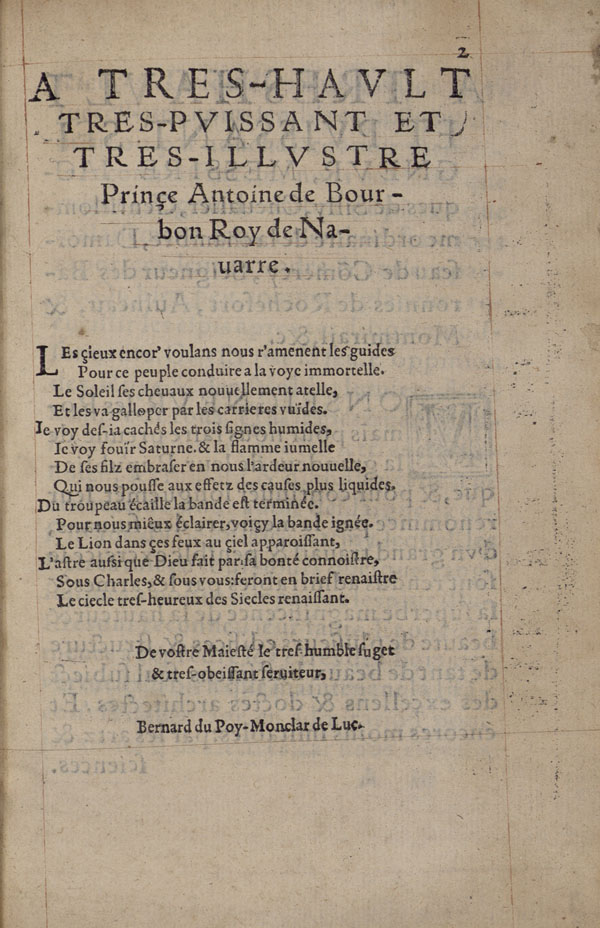 2
A TRES-HAVLT
TRES-PVISSANT ET
TRES-ILLVSTRE
Prinçe Antoine de Bour-
bon Roy de Na-
uarre.
LEs çieux encor' voulans nous r'amenent les guides
Pour ce peuple conduire a la voye immortelle.
Le Soleil ſes cheuaux nouuellement atelle,
Et les va galloper par les carrieres vuïdes.
Ie voy deſ-ia cachés les trois ſignes humides,
Ie voy fouïr Saturne. & la flamme iumelle
De ſes filz embraſer en nous l'ardeur nouuelle,
Qui nous pouſſe aux effetz des cauſes plus liquides.
Du troupeau écaille la bande eſt terminée.
Pour nous miëux éclairer, voiçy la bande ignée.
Le Lion dans çes feux au çiel apparoiſſant,
L'aſtre auſsi que Dieu fait par ſa bonté connoiſtre,
Sous Charles, & ſous vous: feront en brief renaiſtre
Le ciecle treſ-heureux des Siecles renaiſſant.
De voſtre Maieſté le treſ-humble ſuget
& treſ-obeiſſant ſeruiteur,
Bernard du Poy-Monclar de Luç.